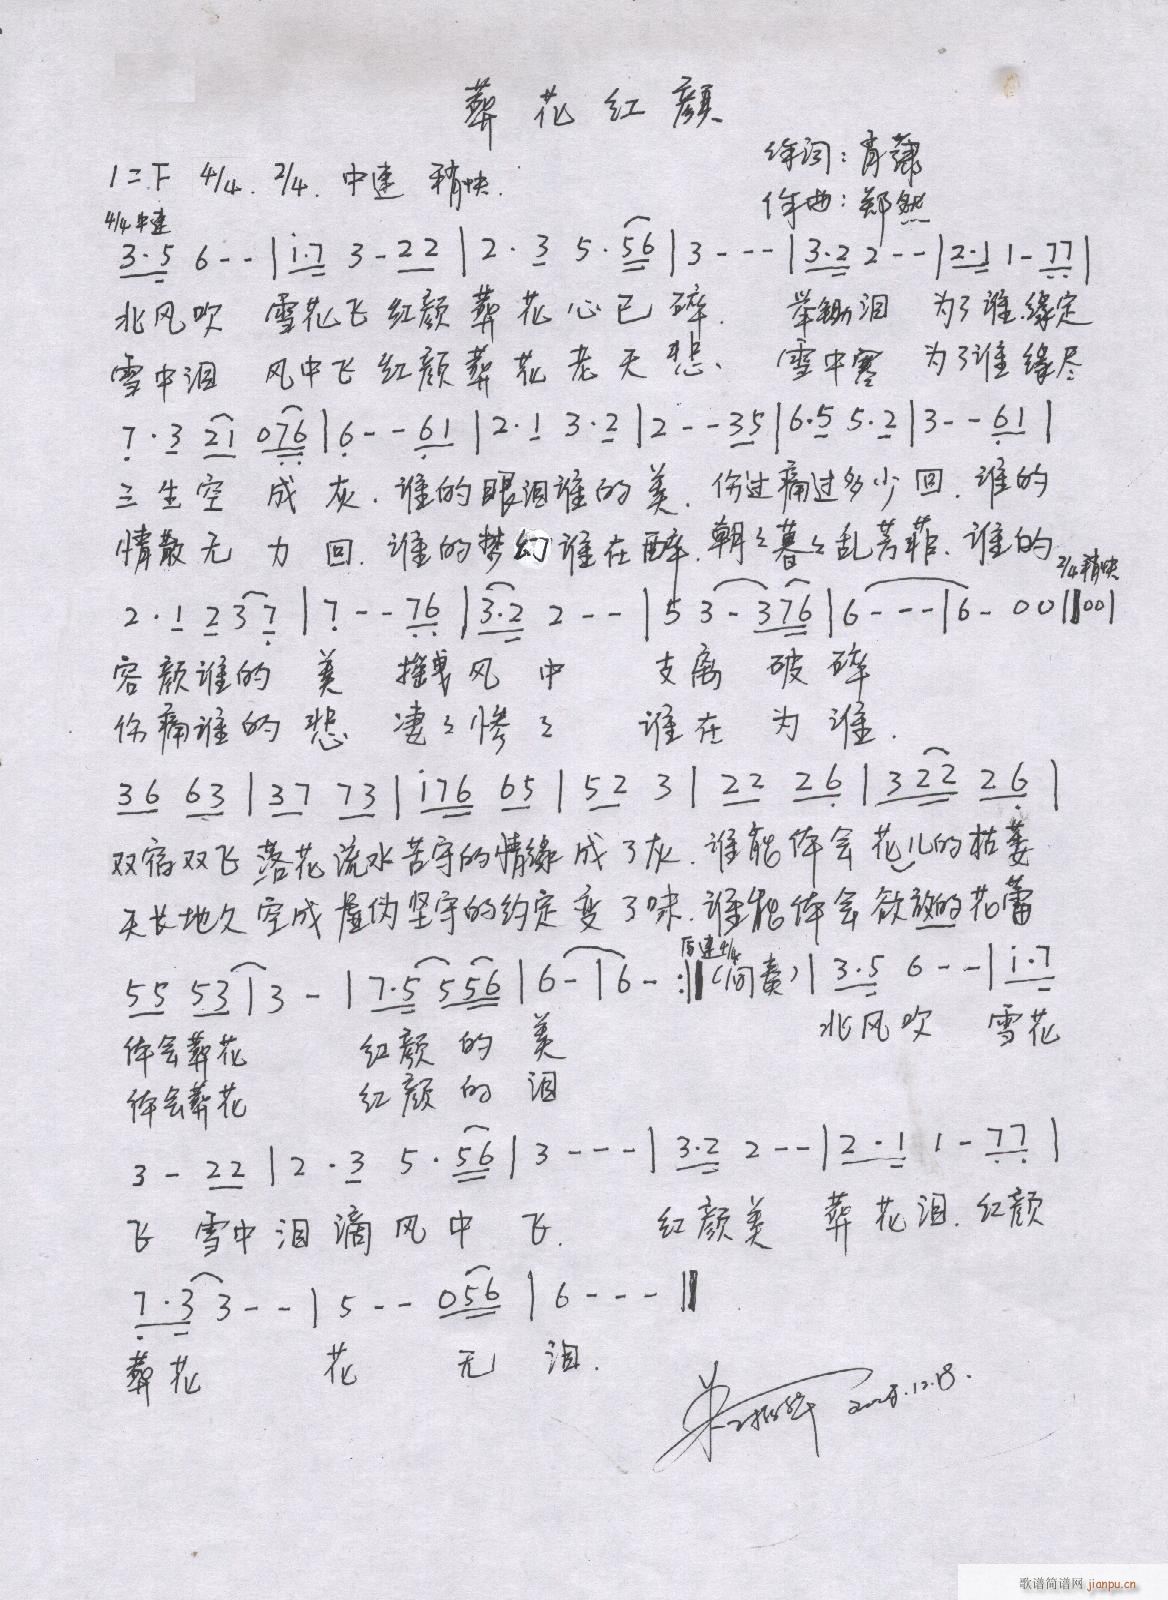 葬花红颜
作词：肖萧
1=F 4/4. 2/4. 中速 稍快.
作曲：郑然
4/4 中速
3·5 6--|i·7 3-22|2·3 5·56|3---|3·2 2--|2·1 1-77|
北风吹 雪花飞红颜葬花心已碎. 举锄泪 为了谁.缘定
雪中泪 风中飞红颜葬花老天悲、 雪中寒 为了谁缘尽
7·3 21 076|6--61|2·1 3·2|2--35|6·5 5·2|3--61|
三生空 成灰.谁的眼泪谁的美.伤过痛过多少回.谁的
情散无 力回.谁的梦幻谁在醉.朝々暮々乱芳菲.谁的
2/4 稍快
2·1 237|7--76|3·2 2--|5 3-376|6---|6-00||00|
容颜谁的 美 摇曳风中 支离破碎
伤痛谁的悲 凄々惨々 谁在为谁.
36 63|37 73|i76 65|52 3|22 26|322 26|
双宿双飞落花流水苦守的情缘成了灰.谁能体会花儿的枯萎
天长地久空成虚伪坚守的约定变了味.谁能体会欲放的花蕾
原速4/4
55 53|3-|7·5 556|6-|6-:||(间奏)|3·5 6--|i·7
体会葬花 红颜的美 北风吹 雪花
体会葬花 红颜的泪
3-22|2·3 5·56|3---|3·2 2--|2·1 1-77|
飞 雪中泪滴风中飞. 红颜美 葬花泪.红颜
7·3 3--|5--056|6---||
葬花 花 无 泪.
12.18.
歌谱简谱网 jianpu.cn